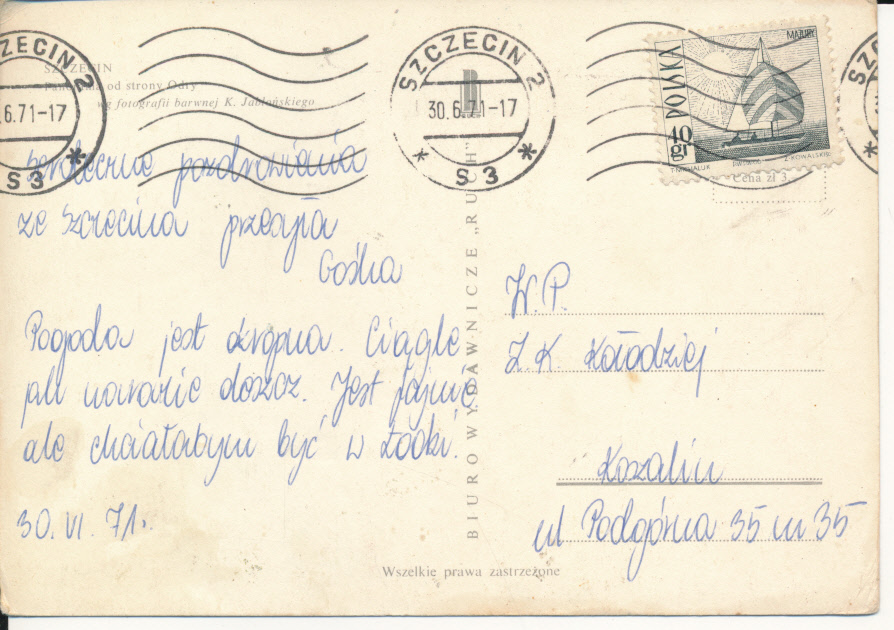 SZCZECIN
Panorama od strony Odry
wg fotografii barwnej K. Jabłońskiego
SZCZECIN 2
.6.71-17
* S 3 *
SZCZECIN 2
30.6.71-17
* S 3 *
POLSKA
MAZURY
40 gr
T. MICHALUK
Z. KOWALSKI
Cena zł 3
Serdeczne pozdrowienia
ze Szczecina przesyła
Gośka
Pogoda jest okropna. Ciągle
deszcz. Jest fajnie
ale chciałabym być w
30. VI. 71.
BIURO WYDAWNICZE „RUCH”
W.P.
Z. K. Kołodziej
Koszalin
ul Podgórna 35 m 35
Wszelkie prawa zastrzeżone